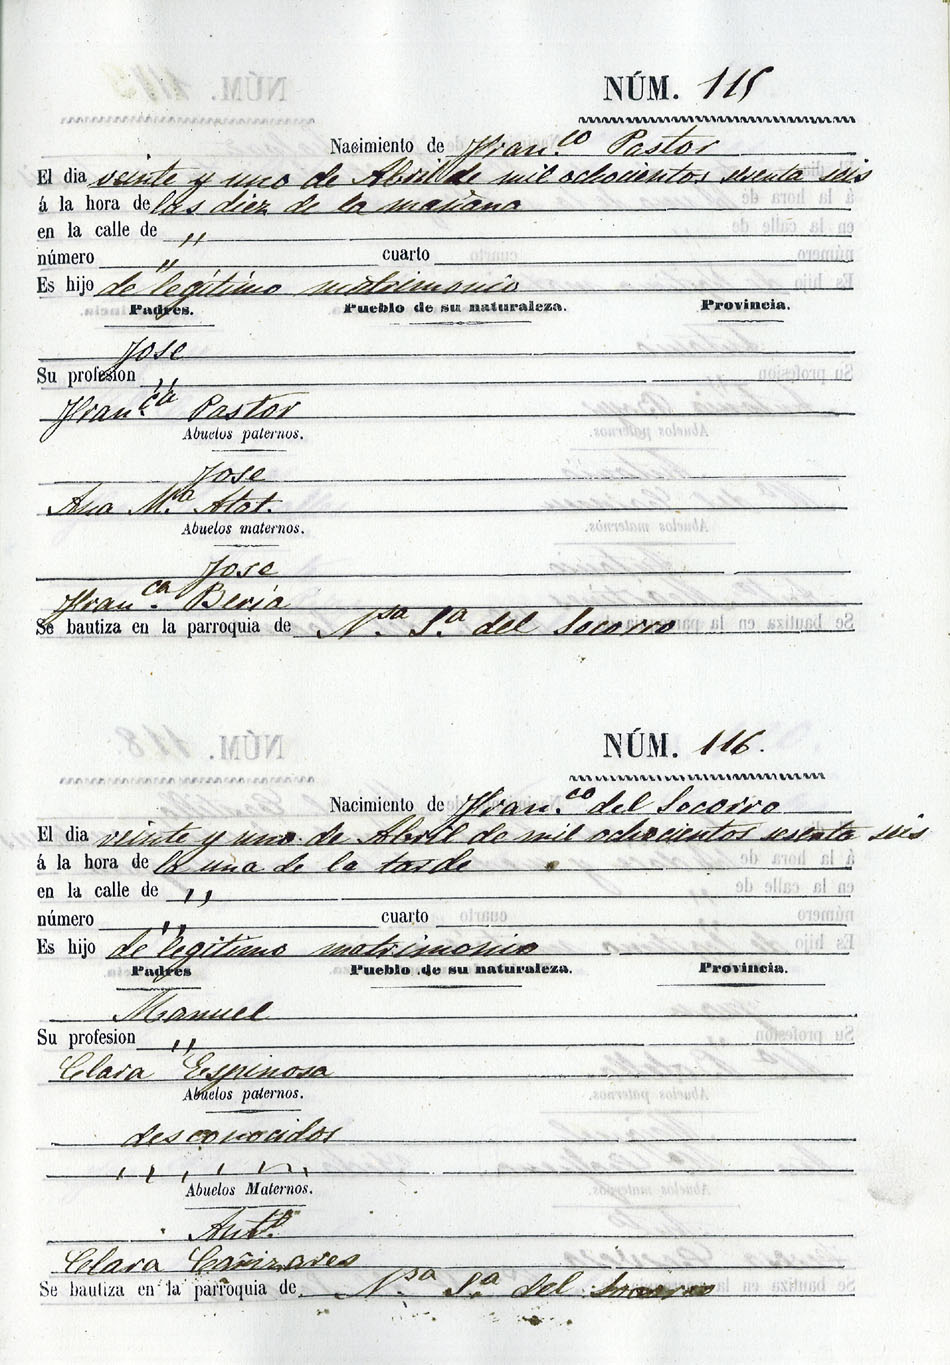 NÚM. 115
Nacimiento de Fran.co Pastor
El dia veinte y uno de Abril de mil ochocientos sesenta seis
á la hora de las diez de la mañana
en la calle de "
número " cuarto
Es hijo de legítimo matrimonio
Padres. Pueblo de su naturaleza. Provincia.
Jose
Su profesion "
Fran.ca Pastor
Abuelos paternos.
Jose
Ana M.a
Abuelos maternos.
Jose
Fran.ca Beria
Se bautiza en la parroquia de N.sa S.a del Socorro
NÚM. 116.
Nacimiento de Fran.co del Socorro
El dia veinte y uno de Abril de mil ochocientos sesenta seis
á la hora de la una de la tarde
en la calle de "
número " cuarto
Es hijo de legitimo matrimonio
Padres Pueblo de su naturaleza. Provincia.
Manuel
Su profesion "
Clara Espinosa
Abuelos paternos.
desconocidos
" " " "
Abuelos Maternos.
Ant.o
Clara Cañizares
Se bautiza en la parroquia de N.sa S.a del Socorro